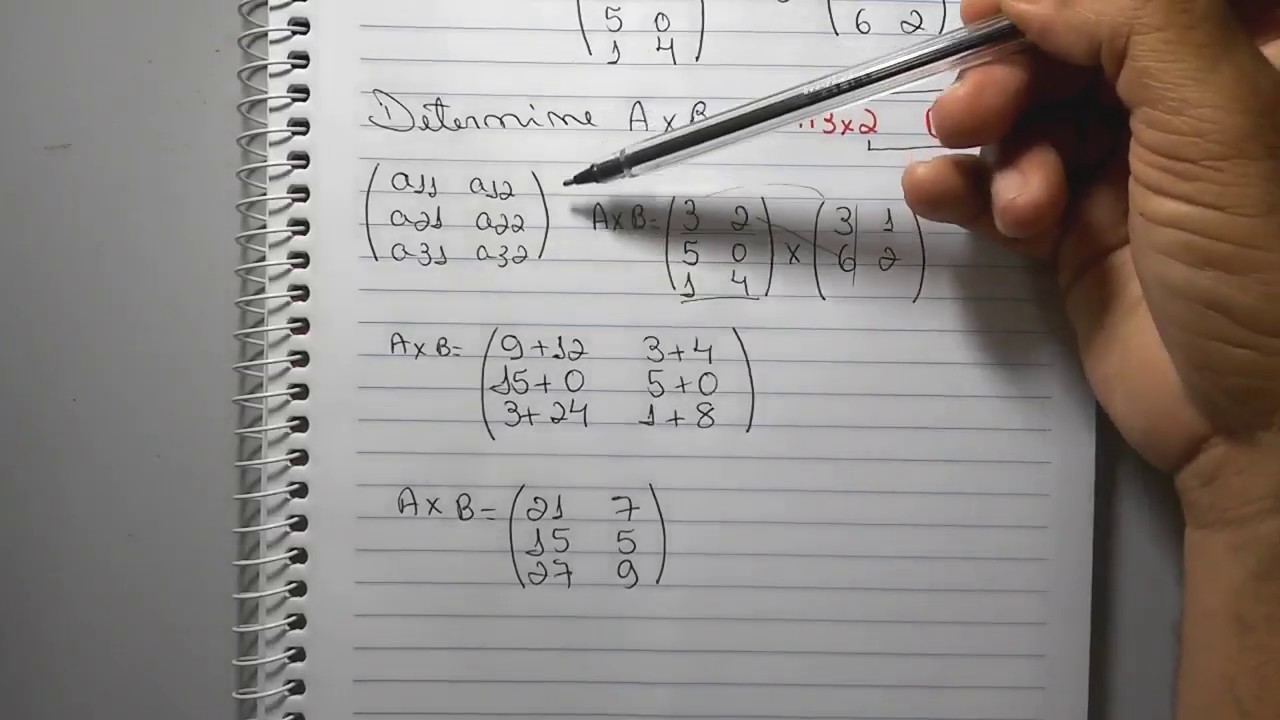 5 0 6 2
1 4
Determine A x B 3x2
a11 a12
a21 a22
a31 a32
AxB= 3 2 x 3 1
5 0 6 2
1 4
AxB= 9+12 3+4
15+0 5+0
3+24 1+8
AxB= 21 7
15 5
27 9